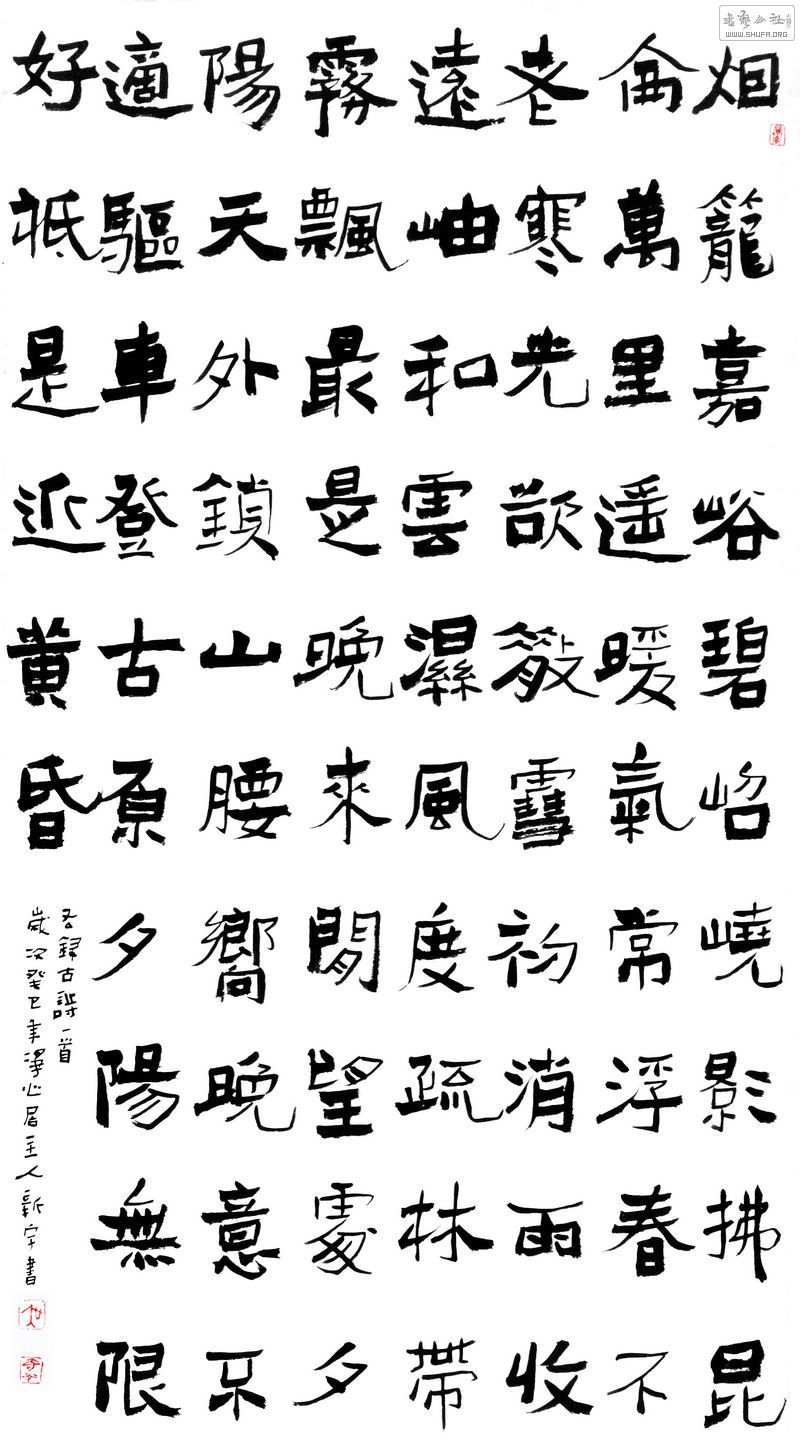 烟籠嘉峪碧岧嶢影拂昆
侖萬里遥暖氣常浮春不
老寒光欲散雪初消雨收
遠岫和雲濕風度疏林帶
霧飄最是晚來閒望處夕
陽天外鎖山腰嚮晚意不
適驅車登古原夕陽無限
好祇是近黄昏
右録古詩一首
歲次癸巳年心居主人新宇書
書藝公社
WWW.SHUFA.ORG